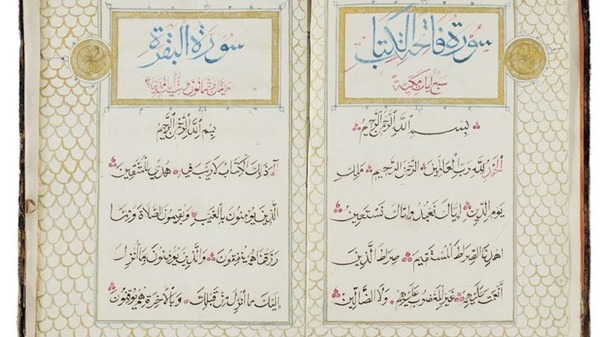 سورة فاتحة الكتاب
سبع آيات مكية
بسم الله الرحمن الرحيم
الحمد لله رب العالمين الرحمن الرحيم مالك
يوم الدين إياك نعبد وإياك نستعين
اهدنا الصراط المستقيم صراط الذين
أنعمت عليهم غير المغضوب عليهم ولا الضالين
سورة البقرة
بسم الله الرحمن الرحيم
الم ذلك الكتاب لا ريب فيه هدى للمتقين
الذين يؤمنون بالغيب ويقيمون الصلاة ومما
رزقناهم ينفقون والذين يؤمنون بما أنزل
إليك وما أنزل من قبلك وبالآخرة هم يوقنون